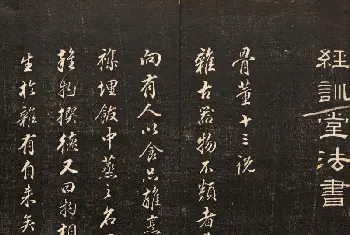 經訓堂法書
骨董十三說
雜古器物不類者
向有人以食品雜烹
襍埋飯中蒸之名
雜物撰德又曰物相
生於雜有自來矣